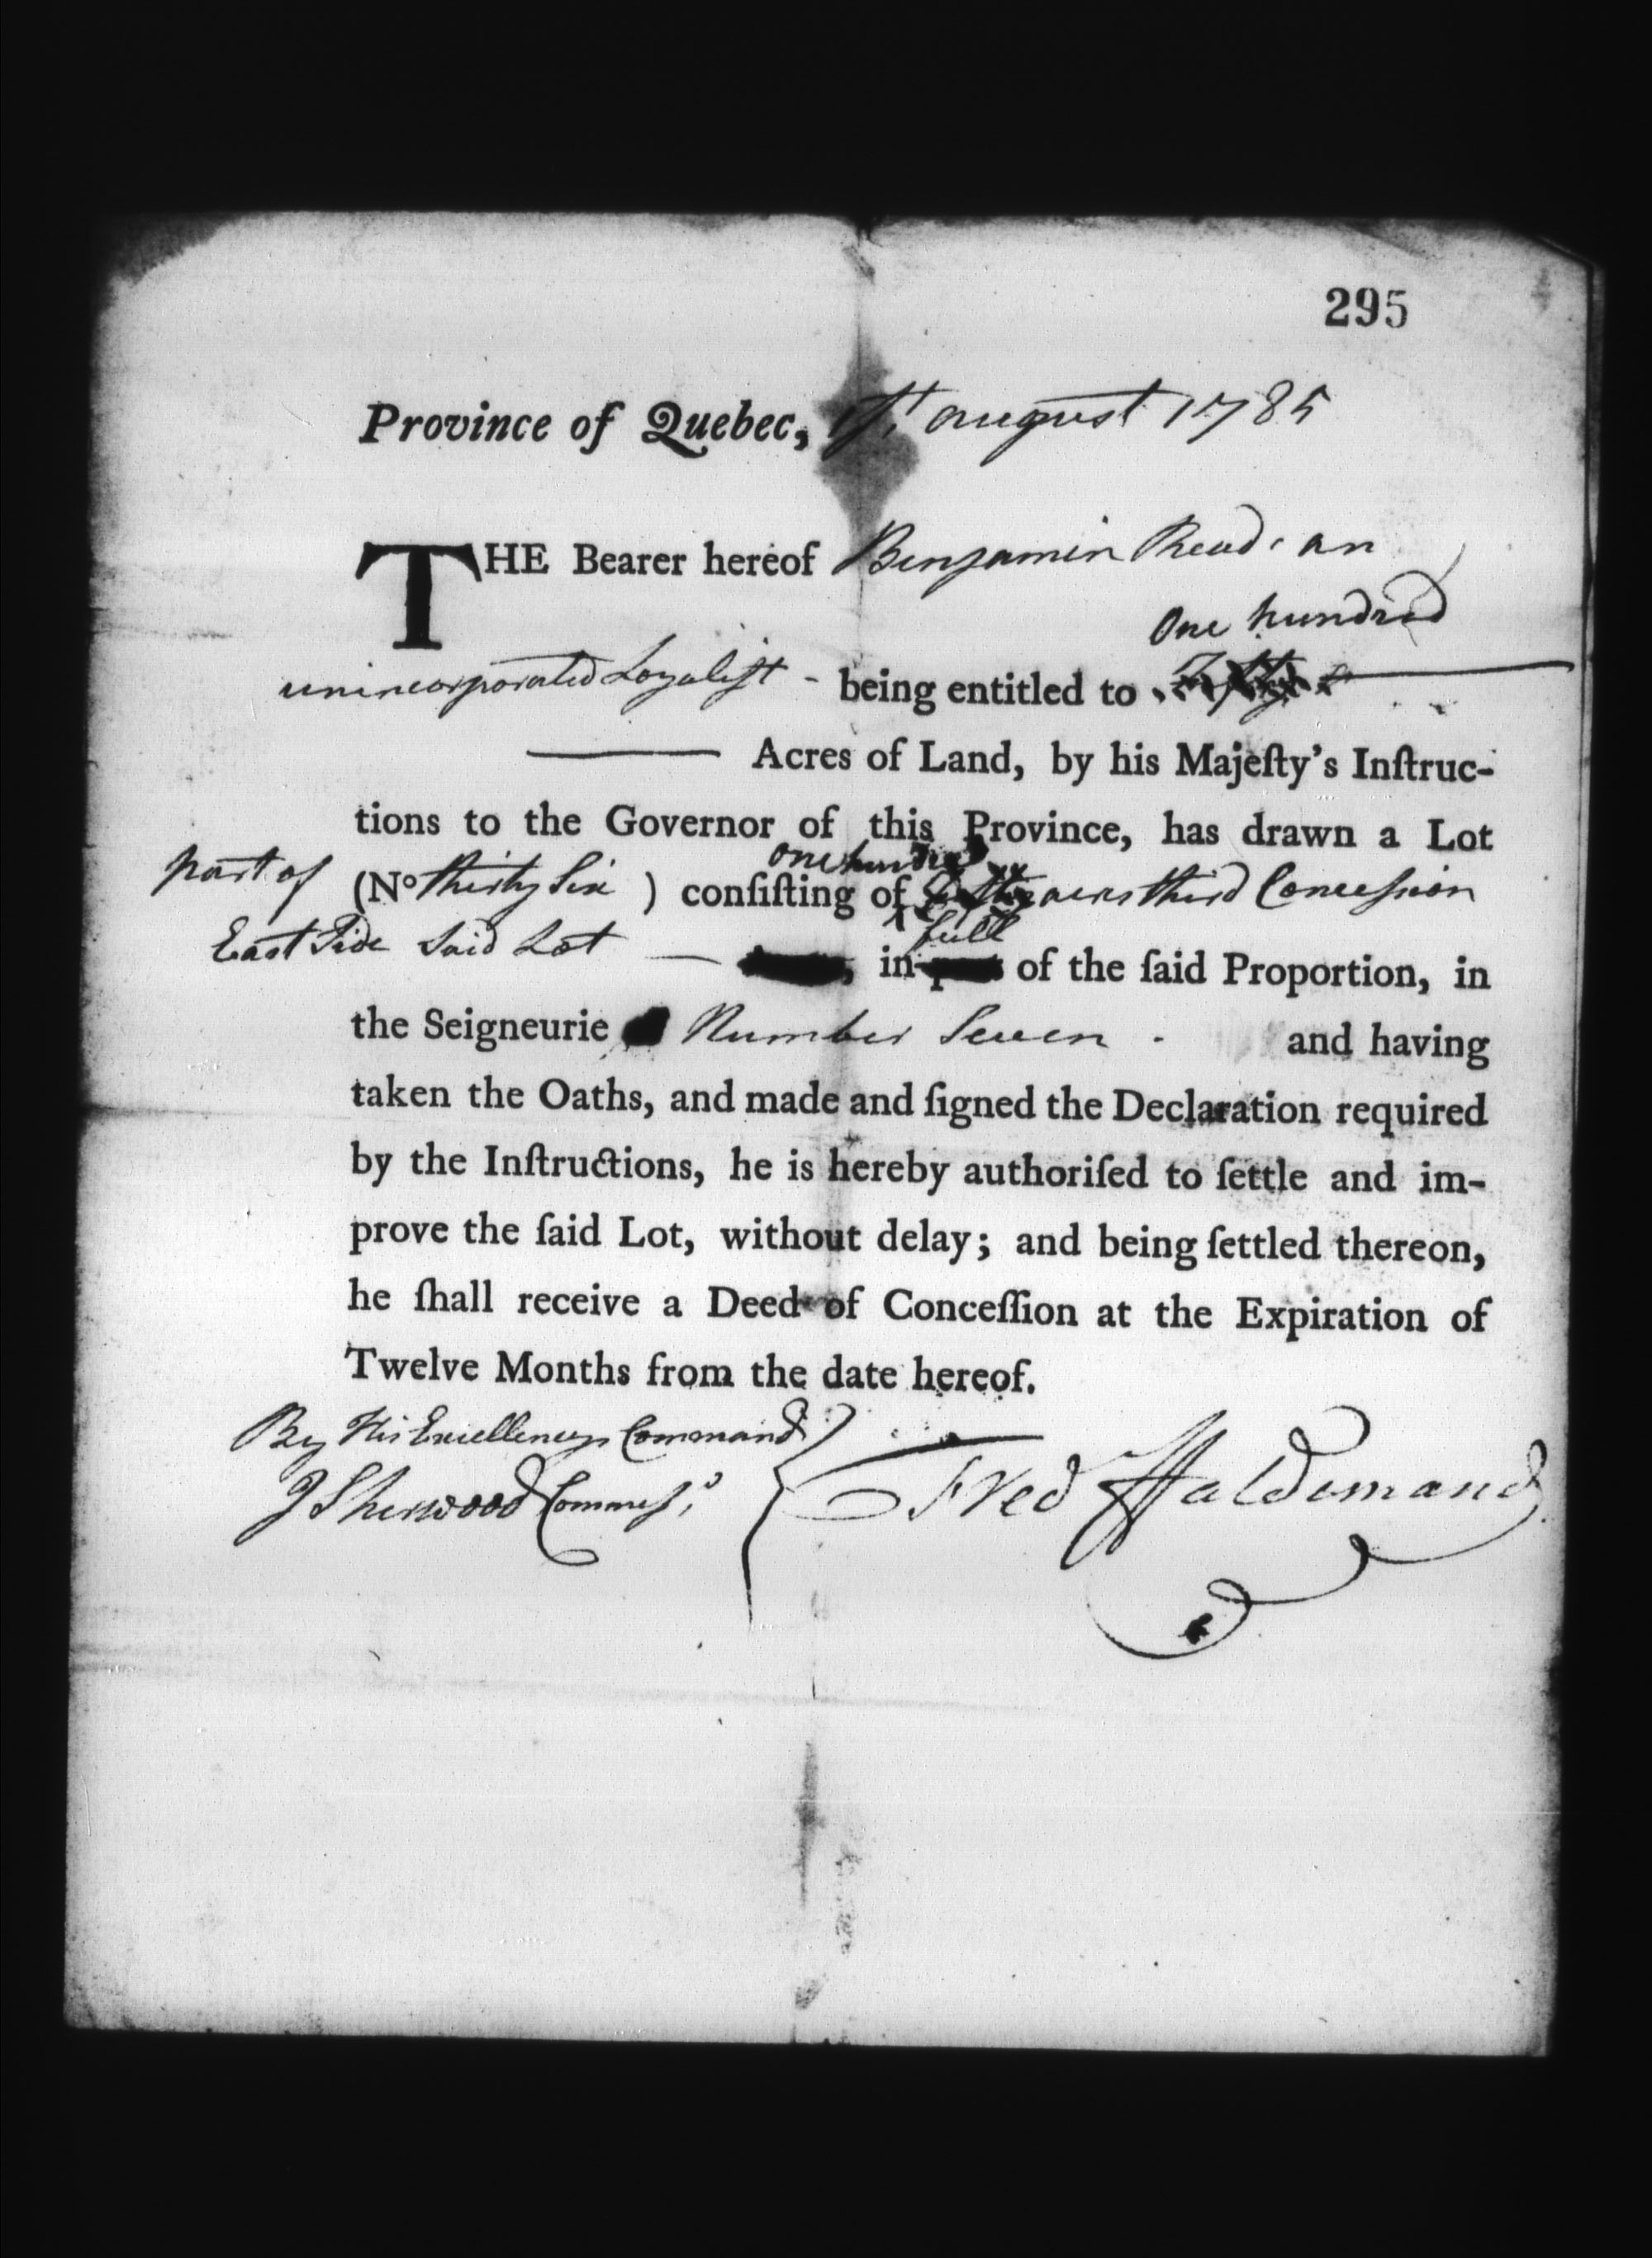 295
Province of Quebec, 1st. august 1785
THE Bearer hereof Benjamin Read, an
One hundred
unincorporated Loyalist - being entitled to Fifty
Acres of Land, by his Majeſty's Inſtruc-
tions to the Governor of this Province, has drawn a Lot
one hundred
part of (No thirty Six ) conſiſting of Fifty acres third Concession
full
East Side Said Lot — in of the ſaid Proportion, in
the Seigneurie Number Seven . and having
taken the Oaths, and made and ſigned the Declaration required
by the Inſtructions, he is hereby authoriſed to ſettle and im-
prove the ſaid Lot, without delay; and being ſettled thereon,
he ſhall receive a Deed of Conceſſion at the Expiration of
Twelve Months from the date hereof.
By His Excellencys Command
J Sherwood Commess.r Fred Haldimand